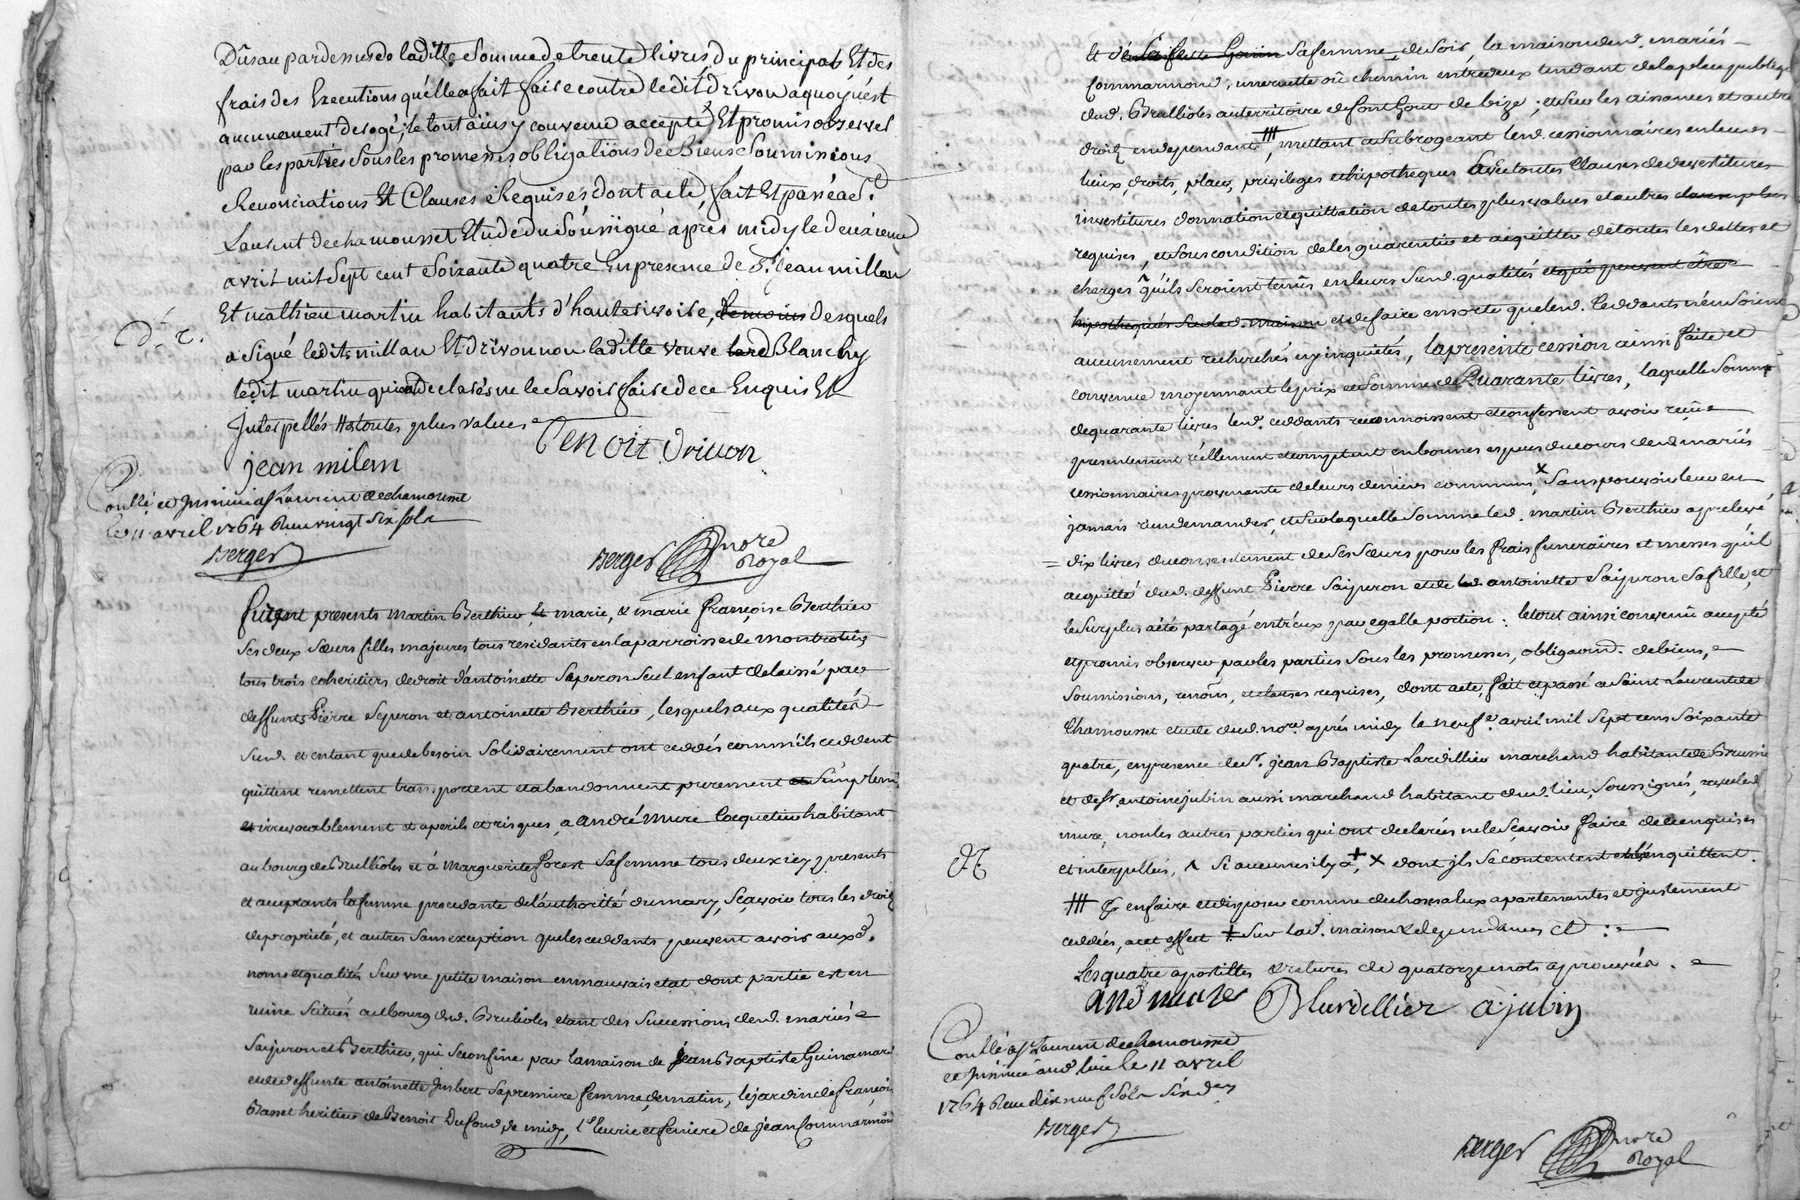 Dûs au par dessus de laditte Somme de trente livres du principal Et des
frais des Executions qu'elle a fait faire contre ledit drivon a quoy n'est
aucunement derogé, le tout ainsy convenu accepté Et promis observer
par les parties Sous les promesses obligations de Biens Soumissions
Renonciations Et Clauses Requises, dont acte, fait Et passé a St.
Laurent de chamousset Etude du Soussigné après midy le deuxieme
avril mil Sept cent Soixante quatre En presence de Sr. jean millan
Et mathieu martin habitants d'hauterivoire, temoins desquels
a Signé ledit millan Et drivon non laditte veuve Blanchy
ledit martin qui ont declarés ne le Savoir faire de ce Enquis Et
Interpellés toutes plus values
jean milan
benoit drivon
Conllé et Insinué a St Laurent de chamousset
le 11 avril 1764 Reçu vingt Six sols
Berger
Berger nore
Royal
furent presents martin Berthieu, Et marie, & marie françoise Berthieu
Ses deux Sœurs filles majeures tous residants en la parroisse de montrotier
tous trois coheritiers de droit d'antoinette Sayeron Seul enfant delaissé par
deffunts Pierre Seyeron et antoinette Berthieu, lesquels aux qualités
Susd. et entant que de besoin Solidairement ont ceddés comm'ils ceddent
quittent remettent transportent et abandonnent purement et Simplemt
et irrevocablement et a perils et risques, a andré mure Coquetier habitant
au bourg de Brullioles et à Marguerite forest Sa femme tous deux icy presents
et acceptants la femme procedante de l'authorité du mary, Sçavoir tous les droits
de proprieté, et autres Sans exception que les ceddants peuvent avoir auxd.
noms et qualités Sur une petite maison en mauvais etat dont partie est en
ruine Scituée au bourg dud. Brulioles etant des Successions desd. mariés
Sayeron et Berthieu, qui Se confine par la maison de jean Baptiste Guinamard
et de deffunte antoinette Imbert Sa premiere femme, de matin, le jardin de françois
Basset heritier de Benoit Dufour, de midy, l'Ecurie et feniere de jean Commarmond
et de Sa femme, de Soir, la maison desd. mariés
Commarmond, une ruette oû chemin entre deux tendant de la place publique
dud. Brullioles au territoire de font Gout de bize; et Sur les aisances et autres
droits en dependant, mettant et Subrogeant lesd. cessionnaires en leurs
lieux, droits, place, privileges et hipotheques avec toutes Clauses de devestitures
investitures donnation et quittation de toutes plus values et autres clauses plus
requises, et Sous condition de les guarentir et acquitter de toutes les dettes et
charges qu'ils Seroient tenus en leurs Susd. qualités et qui peuvent être
hipothequés Sur lad. maison et de faire en sorte que lesd. Ceddants n'en Soient
aucunement recherchés ny inquietés, la presente cession ainsi faite et
convenue moyennant le prix et Somme de Quarante livres, laquelle Somme
de quarante livres lesd. ceddants reconnoissent et confessent avoir reçüe
presentement réellement et comptant en bonnes especes du cours desd. mariés
cessionnaires provenante de leurs deniers communs, Sans pouvoir leur en
jamais rien demander, et Sur laquelle Somme led. martin Berthieu a prelevé
dix livres du consentement de Ses Sœurs pour les frais funeraires et messes qu'il
acquitté dud. deffunt Pierre Saijeron et de antoinette Saijeron Sa fille, et
le Surplus a été partagé entr'eux par egalle portion: le tout ainsi convenu accepté
et promis observer par les parties Sous les promesses, obligaon. de biens,
Soumissions, renons, et clauses requises, dont acte, fait et passé a Saint Laurent de
Chamousset etude dud. nore. après midy le neufe. avril mil Sept cens Soixante
quatre, en presence de Sr. jean Baptiste Lardillier marchand habitant de Brussieu
et de Sr antoine jubin aussi marchand habitant dud. lieu, Soussignés, avec led.
mure, non les autres parties qui ont declarées ne le Sçavoir faire de ce enquises
et interpellées, Si aucunes il y a, dont ils Se contentent et l'en quittent.
en faire et disposer comme de choses a eux apartenantes et justement
ceddées, a cet effect Sur lad. maison & dependances
Les quatre apostilles & ratures de quatorze mots aprouvées.
andé mure
JB Lardillier
a jubin
Conllé a St Laurent de chamousset
et Insinué aud. lieu le 11 avril
1764 Reçu dix neuf Sols Six drs
Berger
Berger nore
Royal